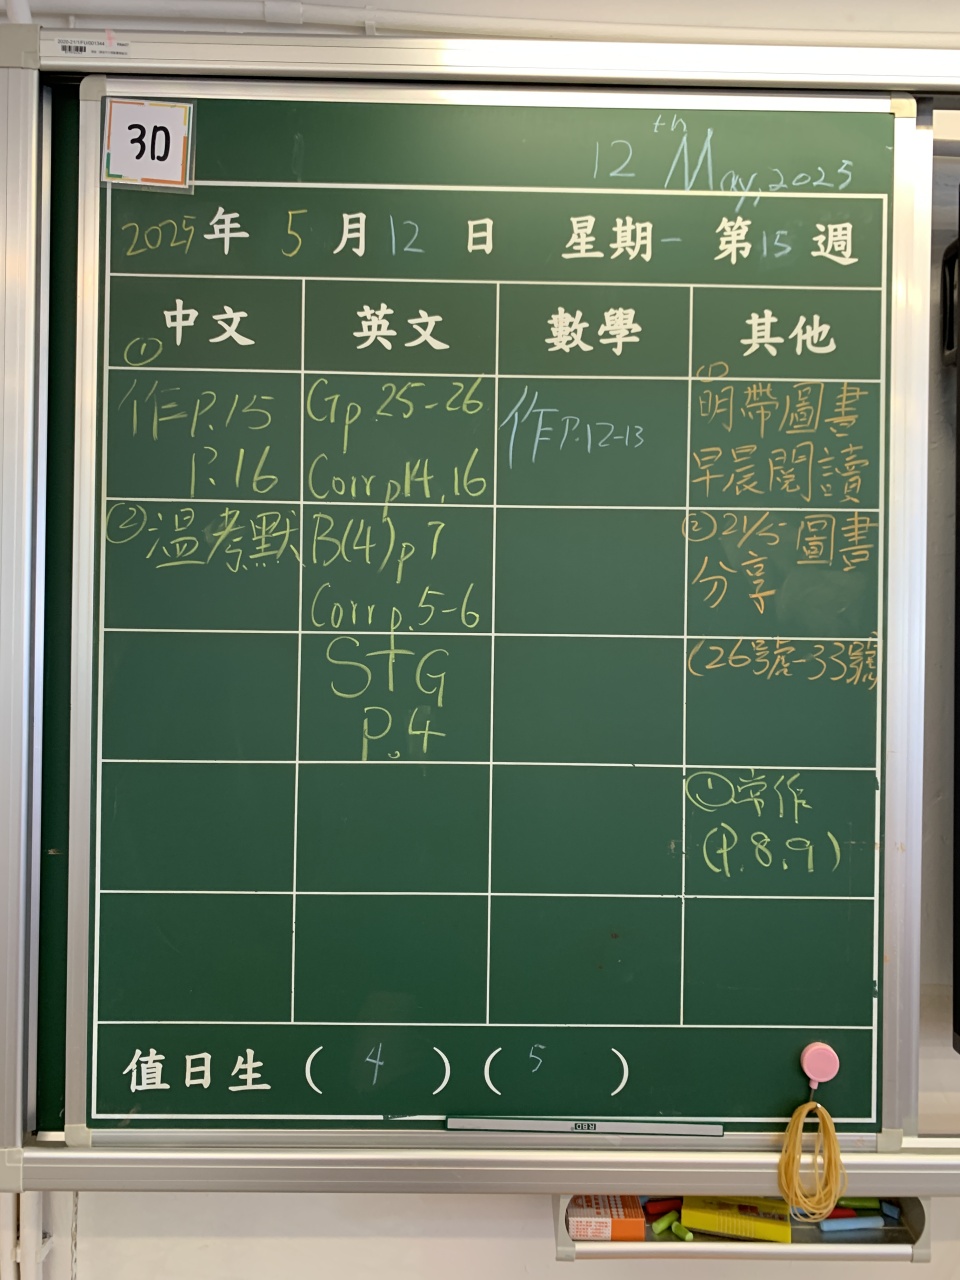 3D
12th May, 2025
2025年 5月12日 星期一 第15週
中文 英文 數學 其他
①
作P.15
P.16
②溫考默
Gp 25-26
Corr p14,16
B(4)p 7
Corr p.5-6
STG
P.4
作P.12-13
①
明帶圖書
早晨閱讀
②21/5 圖書
分享
(26號-33號
①常作
(P.8,9)
值日生 ( 4 ) ( 5 )
RBD